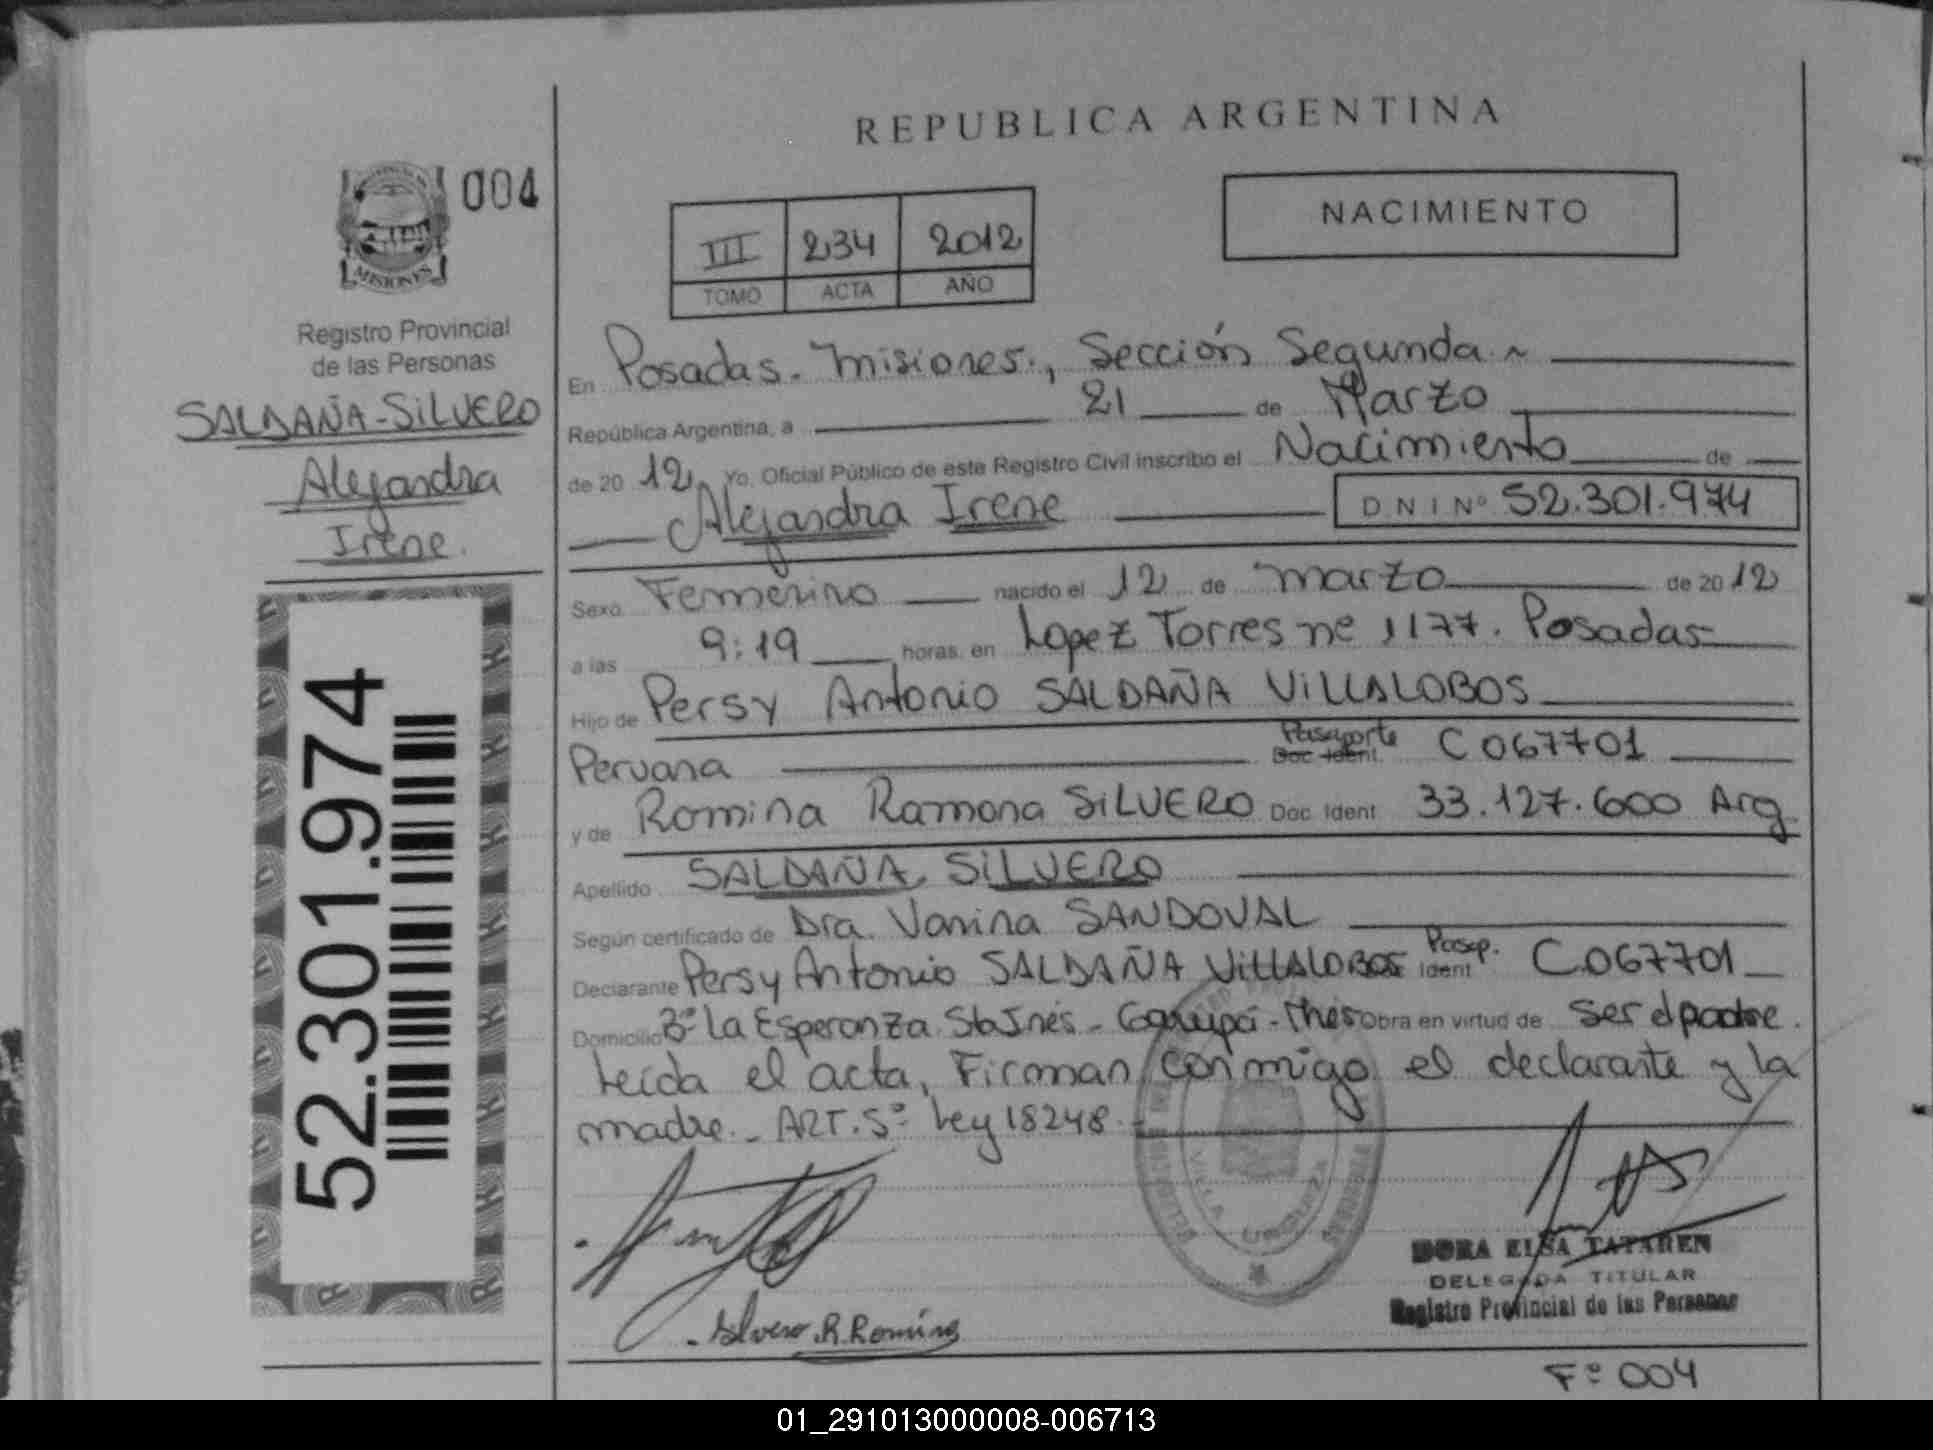 REPUBLICA ARGENTINA
004
MISIONES
III 234 2012
TOMO ACTA AÑO
NACIMIENTO
Registro Provincial
de las Personas
SALDAÑA-SILVERO
Alejandra
Irene.
52.301.974
En Posadas. Misiones., Sección Segunda
República Argentina, a 21 de Marzo
de 2012 Yo, Oficial Público de este Registro Civil inscribo el Nacimiento de
Alejandra Irene D N I Nº 52.301.974
Sexo Femenino nacido el 12 de marzo de 2012
a las 9:19 horas, en Lopez Torres nº 1177. Posadas
Hijo de Persy Antonio SALDAÑA VILLALOBOS
Peruana Pasaporte Doc Ident C067701
y de Romina Ramona SILVERO Doc Ident 33.127.600 Arg
Apellido SALDAÑA, SILVERO
Según certificado de Dra. Vanina SANDOVAL
Declarante Persy Antonio SALDAÑA VILLALOBOS Pasap. Ident C.067701
Domicilio Bº La Esperanza. Sta Inés - Garupá - Mnes Obra en virtud de ser el padre.
Leida el acta, Firman conmigo el declarante y la
madre. - ART. 5º Ley 18248.
DORA ELSA TATAREN
DELEGADA TITULAR
Registro Provincial de las Personas
Silvero R. Romina
Fº 004
01_291013000008-006713